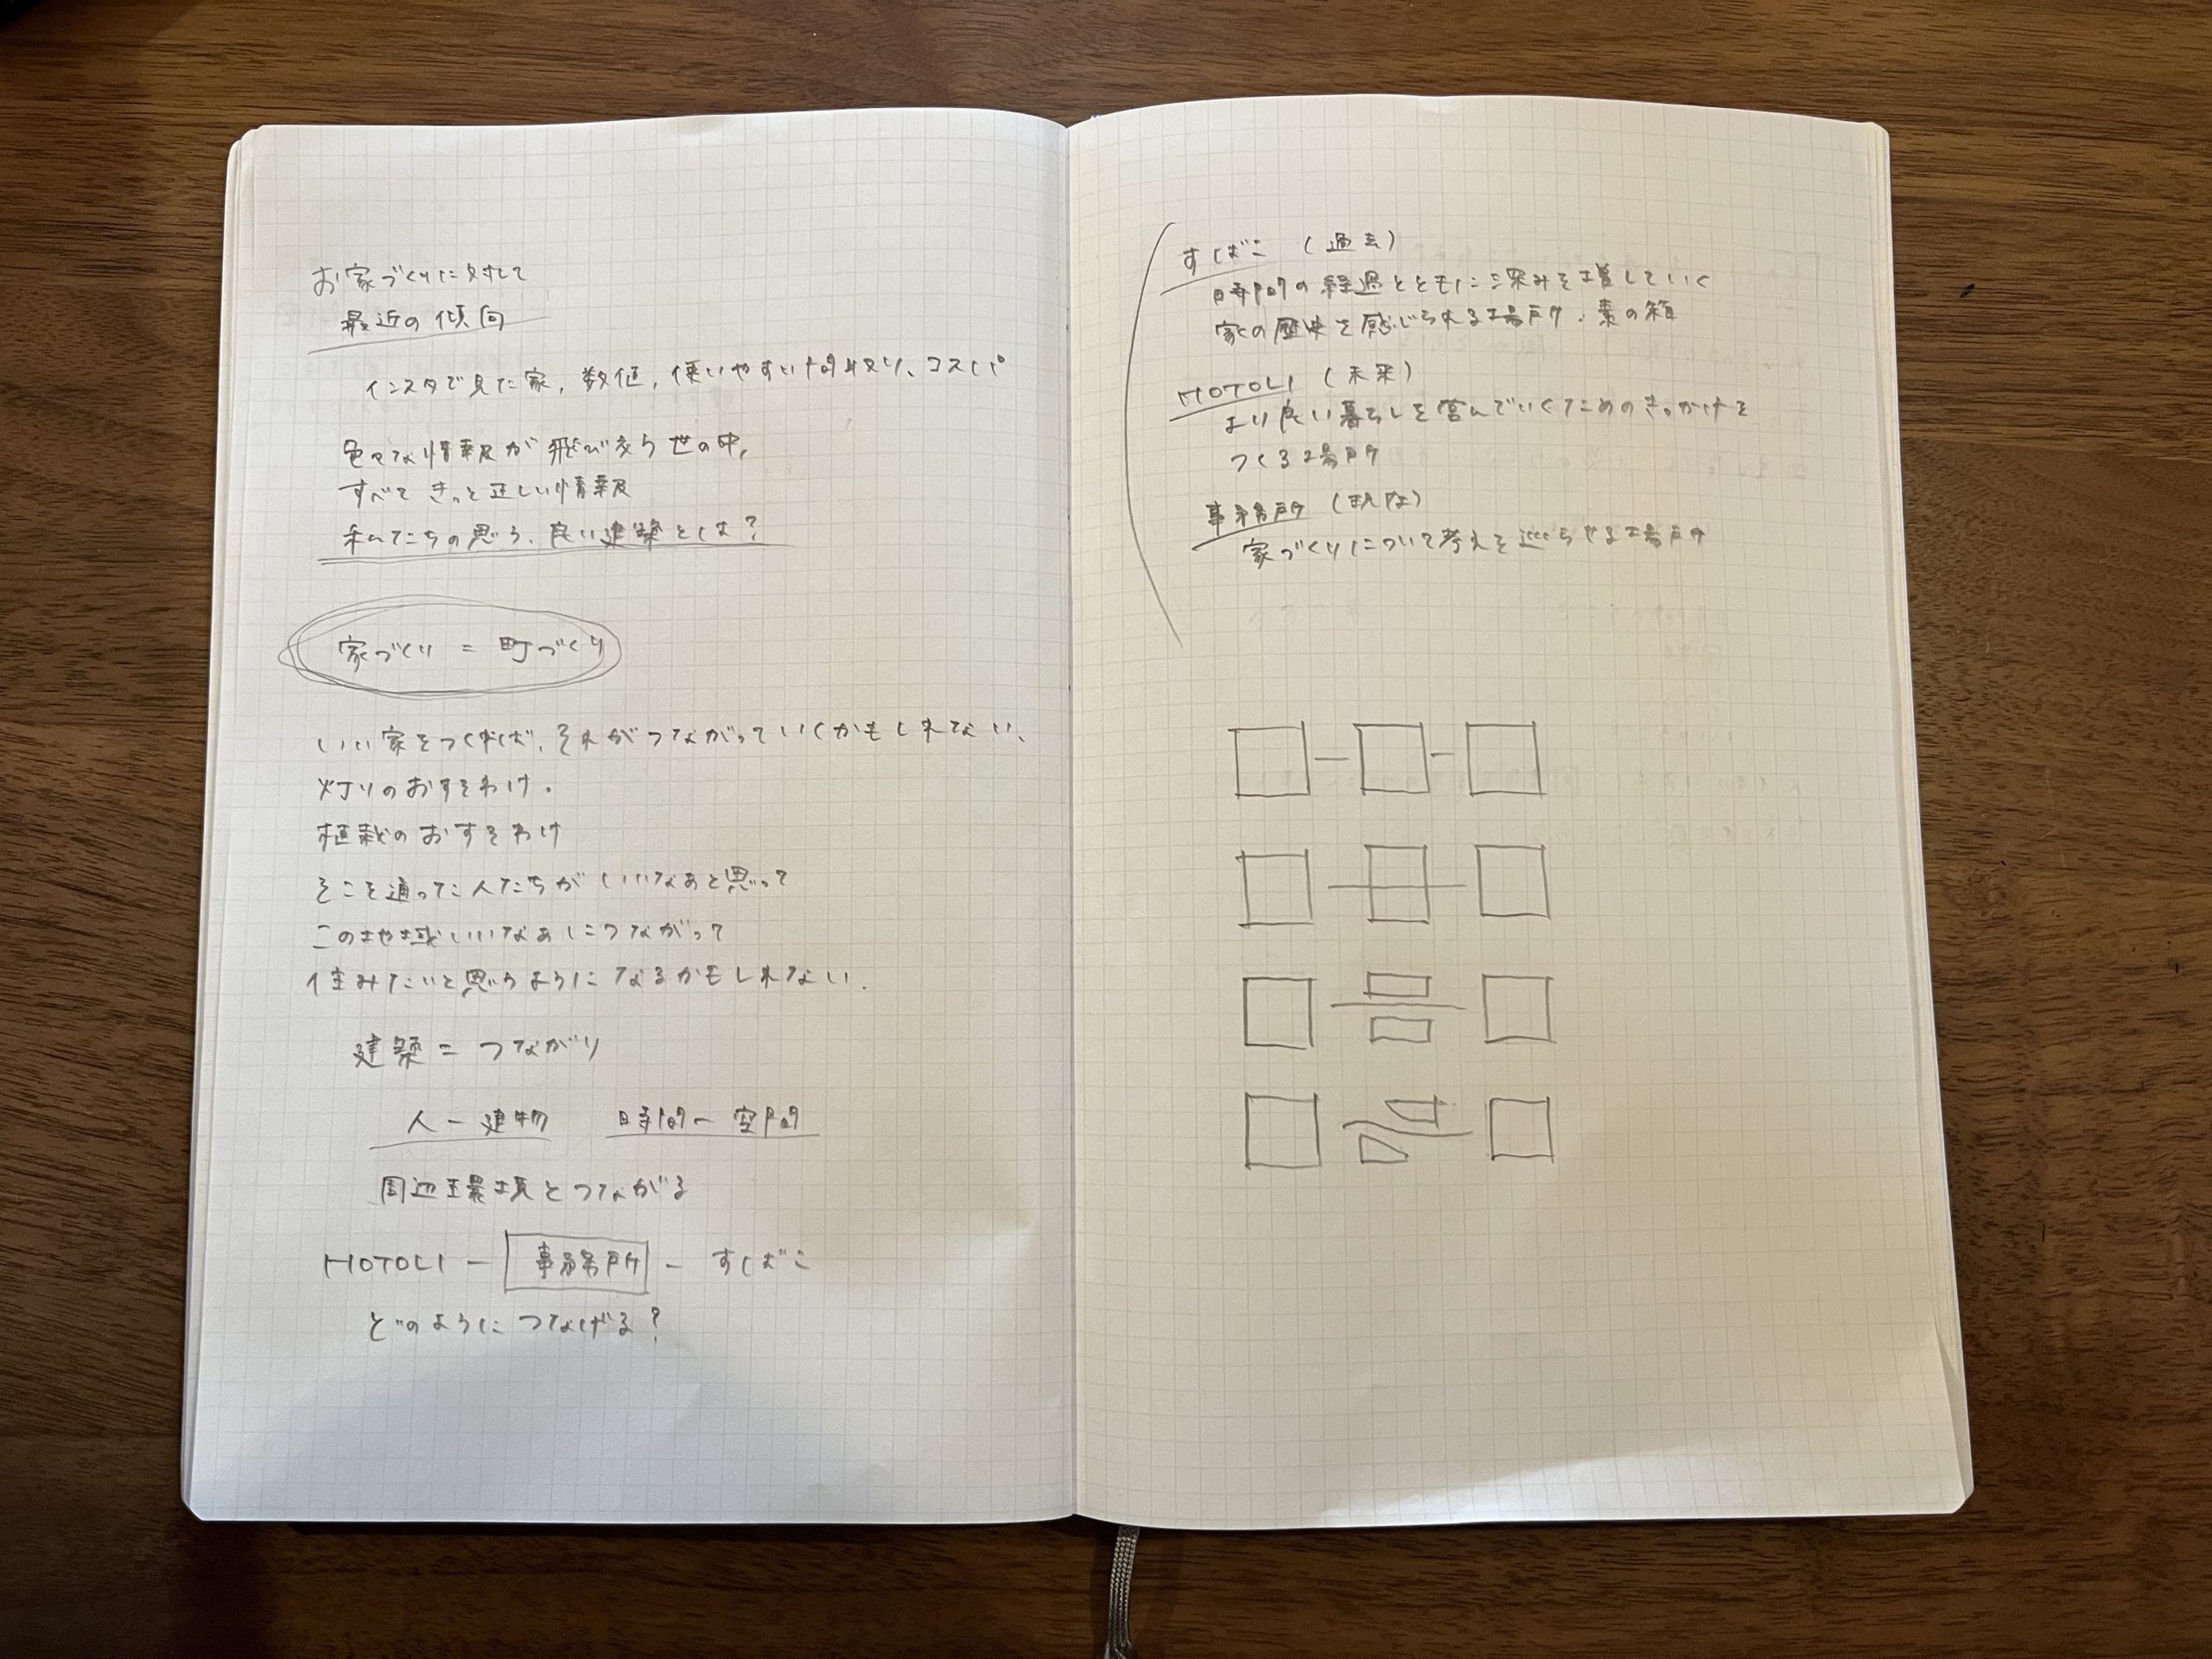 お家づくりに対して
最近の傾向
インスタで見た家, 数値, 使いやすい間取り、コスパ
色々な情報が飛び交う世の中,
すべて きっと正しい情報
私たちの思う、良い建築とは?
家づくり = 町づくり
いい家をつくれば、それがつながっていくかもしれない、
灯りのおすそわけ。
植栽のおすそわけ
そこを通った人たちがいいなぁと思って
この地域いいなぁにつながって
住みたいと思うようになるかもしれない.
建築 = つながり
人 − 建物 時間 − 空間
周辺環境とつながる
HOTOLI − 事務所 − すばこ
どのようにつなげる?
すばこ (過去)
時間の経過とともに深みを増していく
家の歴史を感じられる場所. 素の箱
HOTOLI (未来)
より良い暮らしを営んでいくためのきっかけを
つくる場所
事務所 (現在)
家づくりについて考えを巡らせる場所